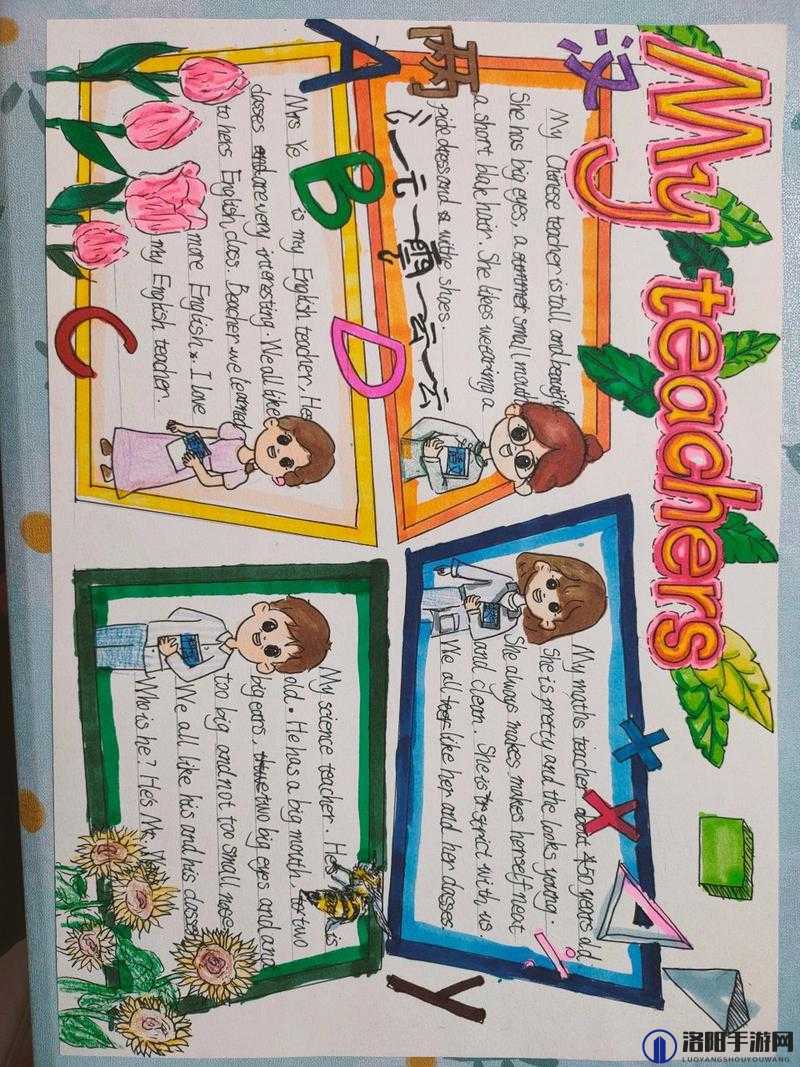 My teachers
汉
My Chinese teacher is tall and beautiful
She has big eyes, a summer small mouth
a short blak hair. She likes wearing a
pide dress and a withe shoes.
A
B
C
D
Mrs Ye is my English teacher. Her
classes and are very interesting. We all like
to hers English class. Beacher we learned
more English. I love
my English teacher.
My maths teacher about 45 years old
She is pretty and the looks young.
She always makes makes herself neat
and clean. She is strict with us
We all like her and her classes.
x
y
My science teacher. He is
old. He has a big mouth, two
big ears, two big eyes and and
too big and not too small nose
We all like his and his classes
Who is he? He's Mr.
洛阳手游网
LUOYANGSHOUYOUWANG